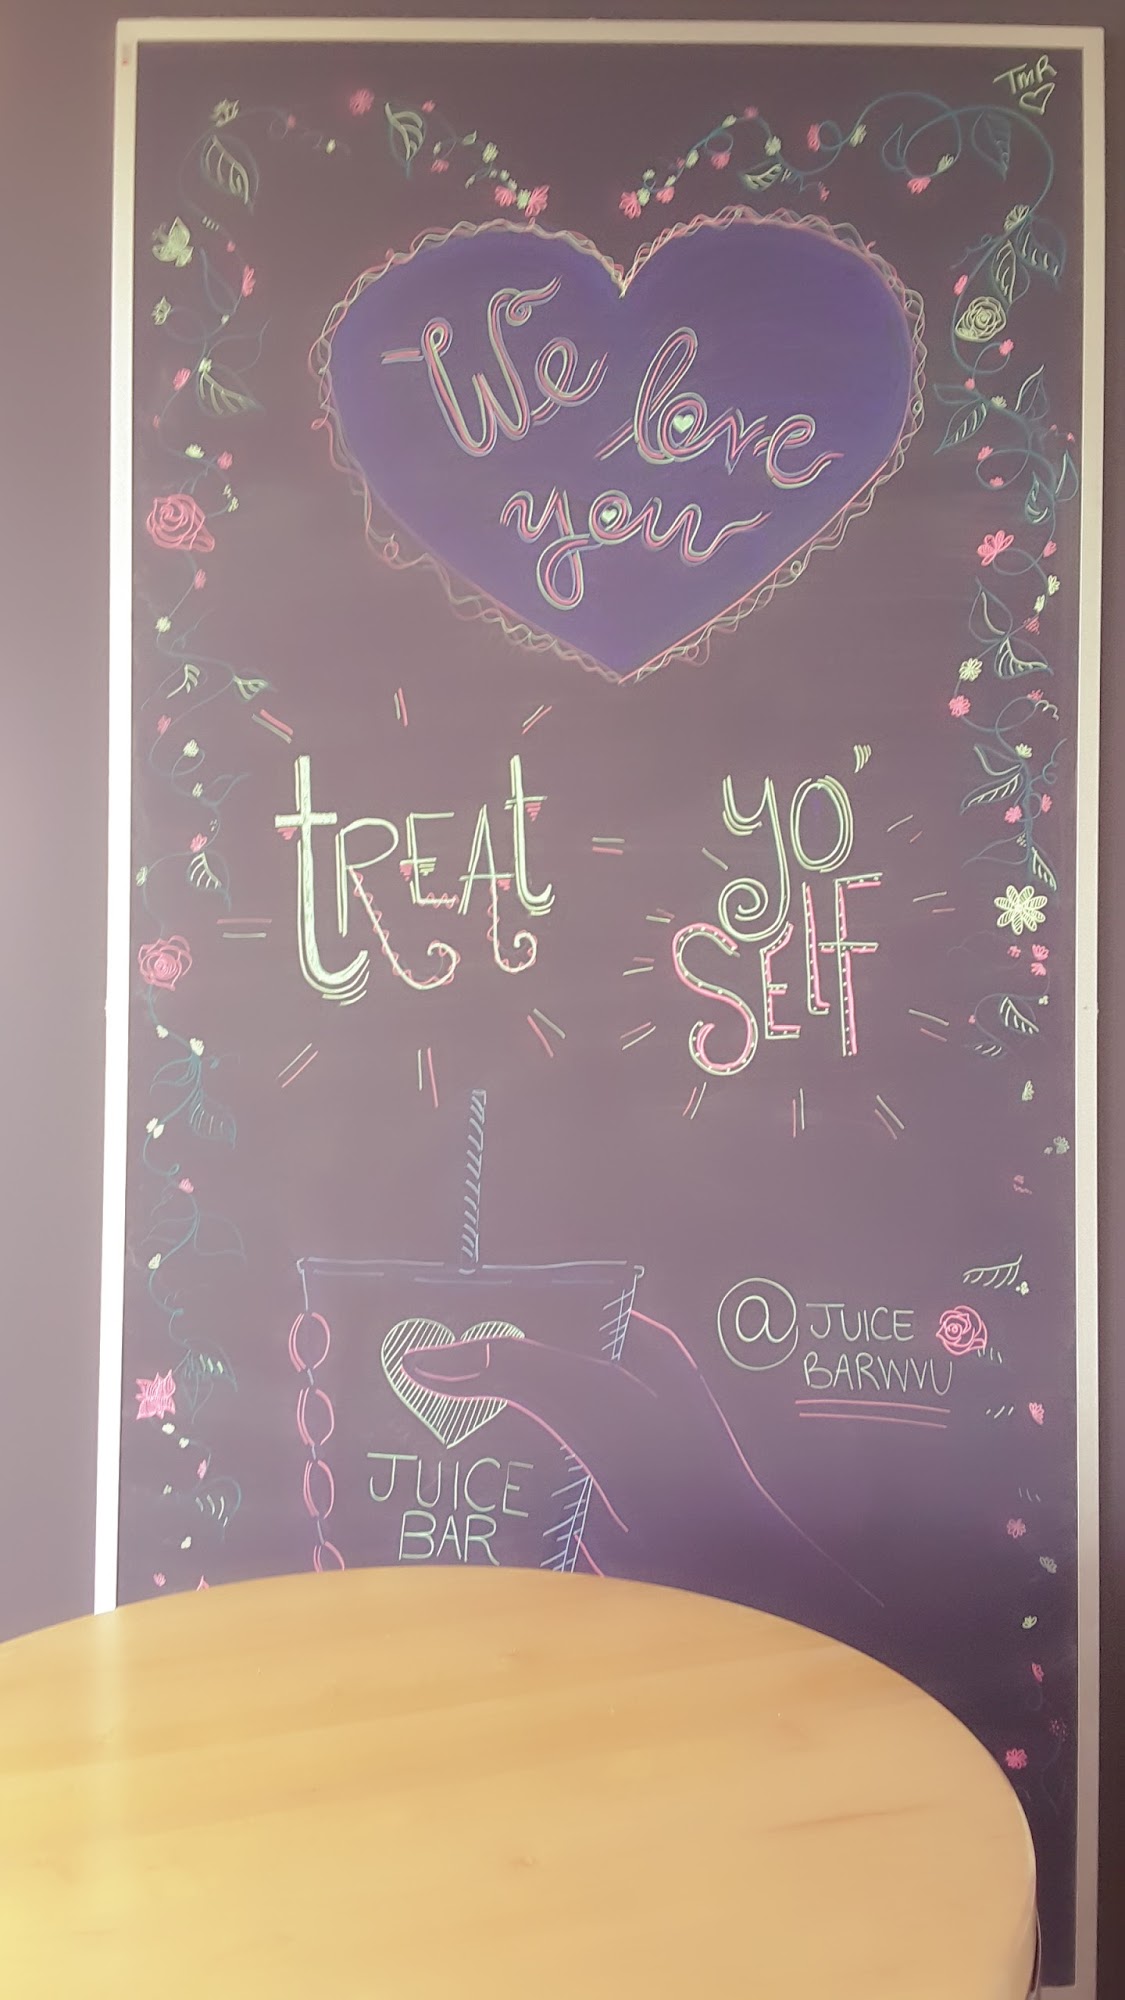 TMR
We love
you
TREAT YO'
SELF
@JUICE
BARWVU
JUICE
BAR